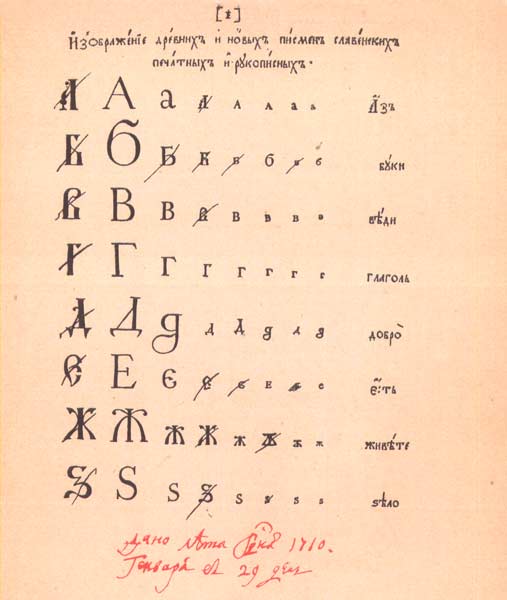 [1]
Изображенїе древнихъ и новыхъ писменъ славенскихъ
печатныхъ и рукописныхъ.
А А а А А А а а Азъ
Б Б Б Б Б б Б б буки
В В В В В В в в вѣди
Г Г Г Г Г Г г г глаголь
Д Д д д Д д д д добро
Є Е є Є є е е е є҆сть
Ж Ж ж Ж ж ж ж ж живѣте
Ѕ Ѕ ѕ Ѕ ѕ ѕ ѕ ѕ ѕѣло
Дано лѣта 1710.
Генваря 29 дня